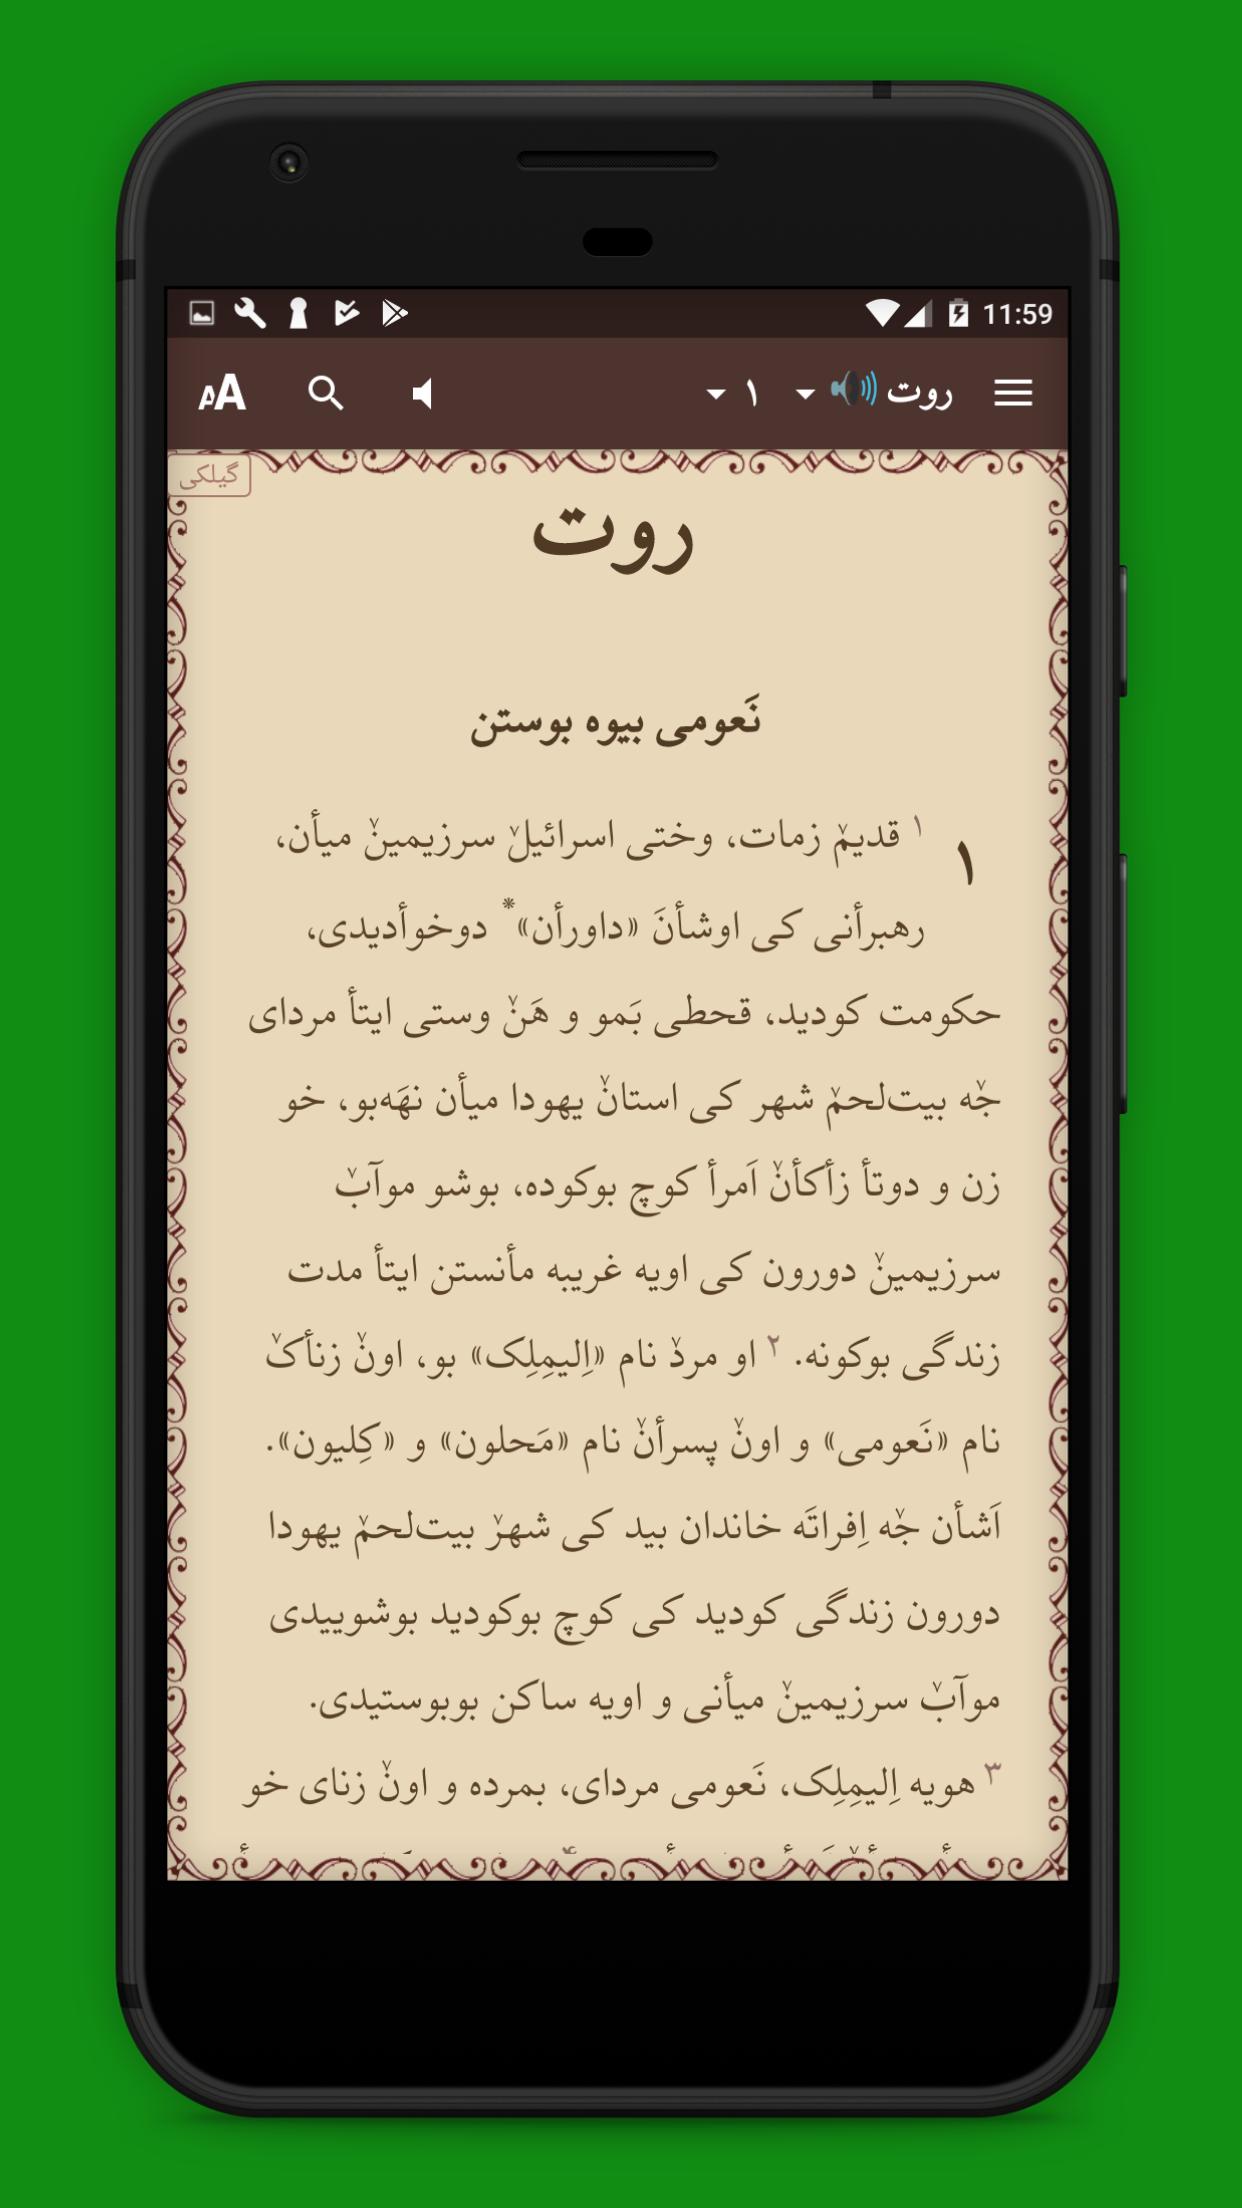 11:59
روت ۱
گیلکی
روت
نَعومی بیوه بوستن
۱
۱ قدیمˇ زمات، وختی اسرائیلˇ سرزیمینˇ میأن،
رهبرأنی کی اوشأنَ «داورأن»* دوخوأدیدی،
حکومت کودید، قحطی بَمو و هَنˇ وستی ایتأ مردای
جˇه بیت‌لحمˇ شهر کی استانˇ یهودا میأن نهَه‌بو، خو
زن و دوتأ زأکأنˇ اَمرأ کوچ بوکوده، بوشو موآبˇ
سرزیمینˇ دورون کی اویه غریبه مأنستن ایتأ مدت
زندگی بوکونه. ۲ او مردˇ نام «اِلیمِلِک» بو، اونˇ زنأکˇ
نام «نَعومی» و اونˇ پسرأنˇ نام «مَحلون» و «کِلیون».
اَشأن جˇه اِفراتَه خاندان بید کی شهرˇ بیت‌لحمˇ یهودا
دورون زندگی کودید کی کوچ بوکودید بوشوییدی
موآبˇ سرزیمینˇ میأنی و اویه ساکن بوبوستیدی.
۳ هویه اِلیمِلِک، نَعومی مردای، بمرده و اونˇ زنای خو